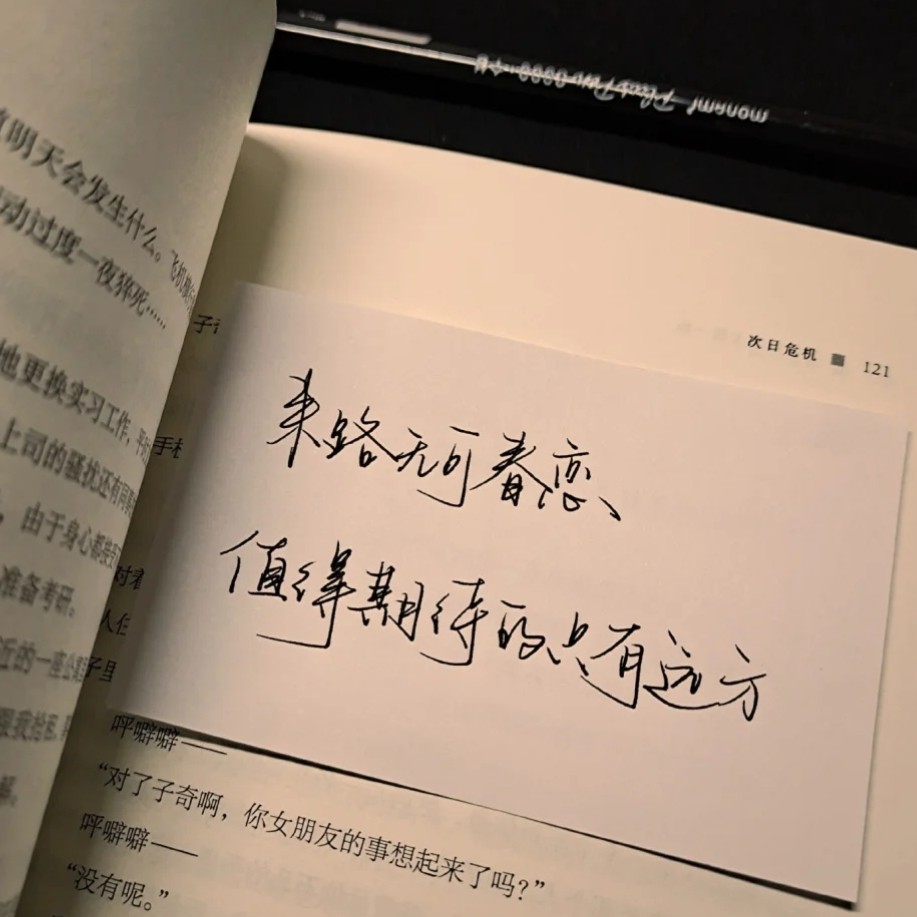 明天会发生什么。飞机
动过度一夜猝死……
地更换实习工作,
上司的骚扰还有同
,由于身心都
准备考研。
近的一座公
次日危机 121
来路无可春恋、
值得期待的只有远方
呼噼噼——
“对了子奇啊,你女朋友的事想起来了吗?”
呼噼噼——
“没有呢。”